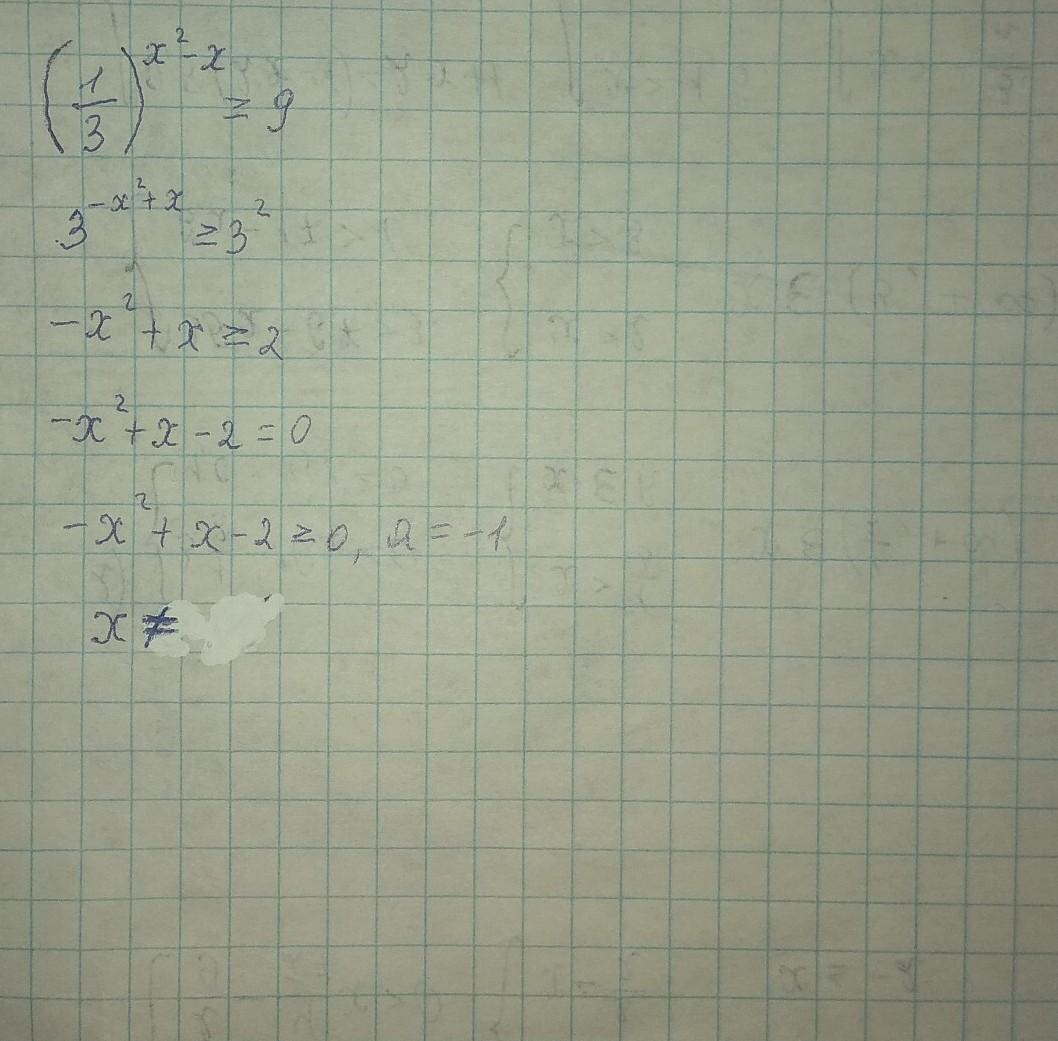 (1/3)^(x²-x) ≥ 9
3^(-x²+x) ≥ 3²
-x² + x ≥ 2
-x² + x - 2 = 0
-x² + x - 2 ≥ 0, a = -1
x ≠